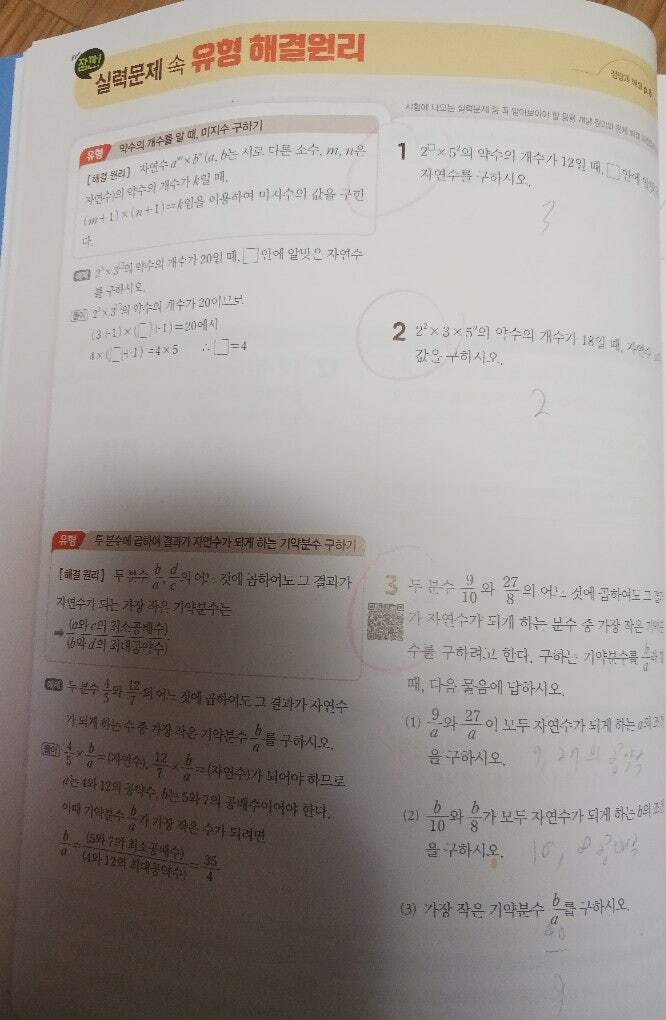 잠깐!
실력문제 속 유형 해결원리
정답과 해설 p.
시험에 나오는 실력문제 중 꼭 알아보아야 할 응용 개념 정리와 문제 해결
유형 약수의 개수를 알 때, 미지수 구하기
[해결 원리] 자연수 aᵐ×bⁿ(a, b는 서로 다른 소수, m, n은
자연수)의 약수의 개수가 k일 때,
(m+1)×(n+1)=k임을 이용하여 미지수의 값을 구한
다.
예제 2³×3□의 약수의 개수가 20일 때, □ 안에 알맞은 자연수
를 구하시오.
풀이 2³×3□의 약수의 개수가 20이므로
(3+1)×(□+1)=20에서
4×(□+1)=4×5 ∴ □=4
1 2□×5²의 약수의 개수가 12일 때, □ 안에
자연수를 구하시오.
3
2 2²×3×5ⁿ의 약수의 개수가 18일 때, 자연수
값을 구하시오.
2
유형 두 분수에 곱하여 결과가 자연수가 되게 하는 기약분수 구하기
[해결 원리] 두 분수 b/a, d/c의 어느 것에 곱하여도 그 결과가
자연수가 되는 가장 작은 기약분수는
➡ (a와 c의 최소공배수)/(b와 d의 최대공약수)
예제 두 분수 4/5와 12/7의 어느 것에 곱하여도 그 결과가 자연수
가 되게 하는 수 중 가장 작은 기약분수 b/a를 구하시오.
풀이 4/5×b/a=(자연수), 12/7×b/a=(자연수)가 되어야 하므로
a는 4와 12의 공약수, b는 5와 7의 공배수이어야 한다.
이때 기약분수 b/a가 가장 작은 수가 되려면
b/a=(5와 7의 최소공배수)/(4와 12의 최대공약수)=35/4
3 두 분수 9/10와 27/8의 어느 것에 곱하여도 그 결과
가 자연수가 되게 하는 분수 중 가장 작은 기약분
수를 구하려고 한다. 구하는 기약분수를 b/a라 할
때, 다음 물음에 답하시오.
(1) 9/a와 27/a이 모두 자연수가 되게 하는 a의 조건
을 구하시오. 9, 27의 공약
(2) b/10와 b/8가 모두 자연수가 되게 하는 b의 조건
을 구하시오. 10, 8 공배
(3) 가장 작은 기약분수 b/a를 구하시오.
40